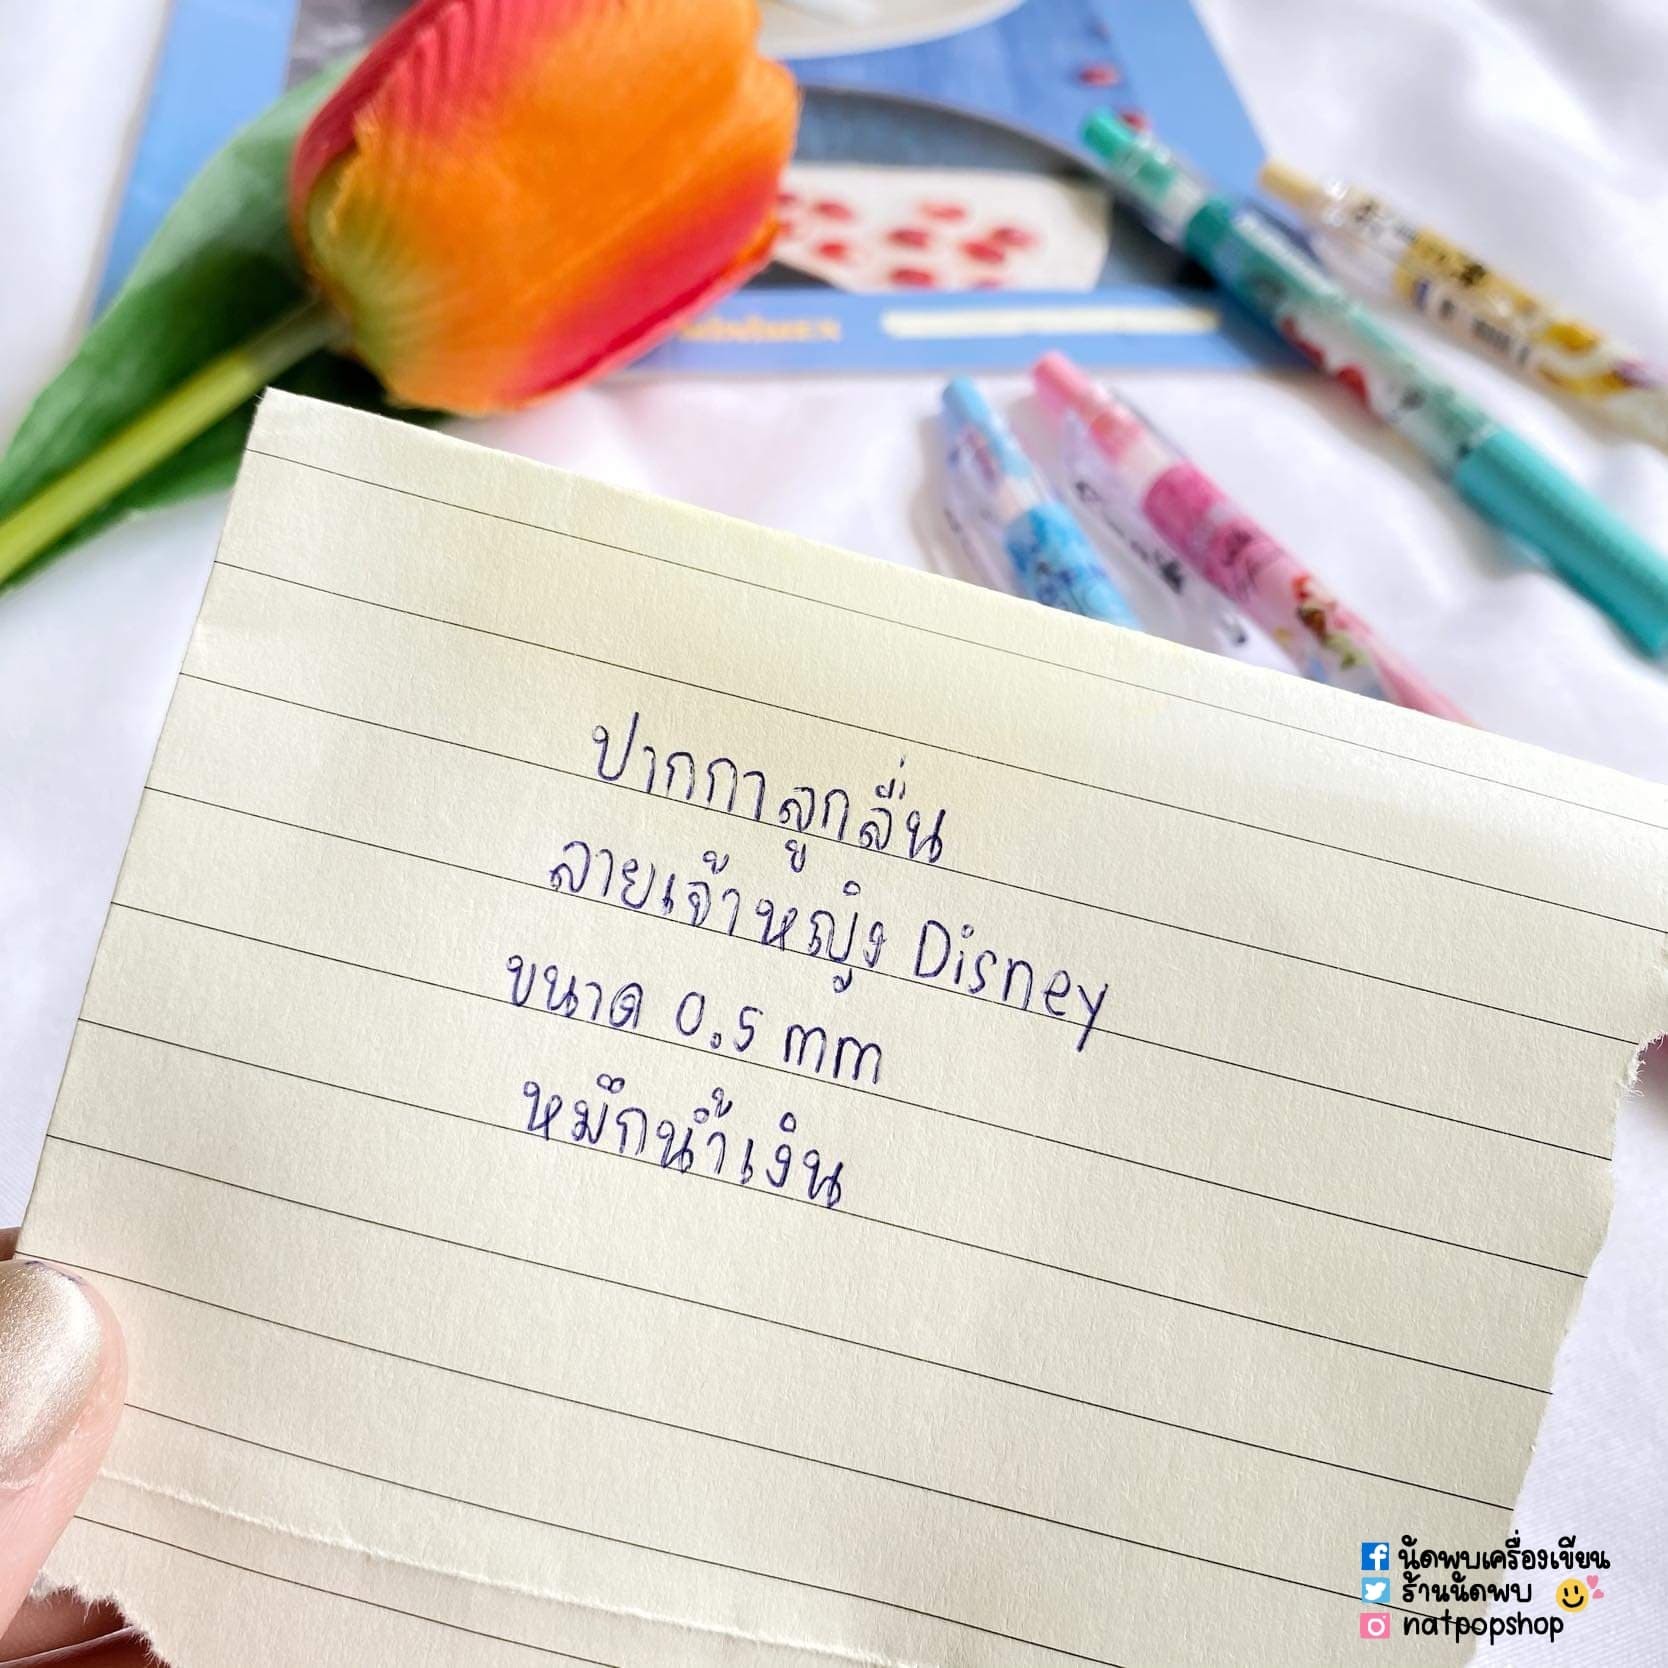 ปากกาลูกลื่น
ลายเจ้าหญิง Disney
ขนาด 0.5 mm
หมึกน้ำเงิน
นัดพบเครื่องเขียน
ร้านนัดพบ
natpopshop